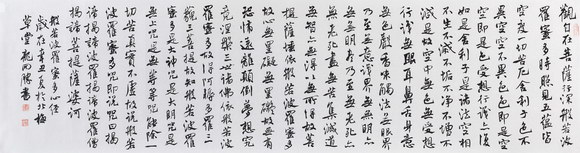 觀自在菩薩行深般若
波羅蜜多時照見五蘊皆
空度一切苦厄舍利子色不
異空空不異色色即是空
空即是色受想行識亦復
如是舍利子是諸法空相
不生不滅不垢不淨不增不
減是故空中無色無受想
行識無眼耳鼻舌身意
無色聲香味觸法無眼界
乃至無意識界無無明亦
無無明盡乃至無老死亦
無老死盡無苦集滅道
無智亦無得以無所得故菩
提薩埵依般若波羅蜜多
故心無罣礙無罣礙故無有
恐怖遠離顛倒夢想究
竟涅槃三世諸佛依般若波
羅蜜多故得阿耨多羅三
藐三菩提故知般若波羅
蜜多是大神咒是大明咒是
無上咒是無等等咒能除一
切苦真實不虛故說般若
波羅蜜多咒即說咒曰揭
諦揭諦波羅揭諦波羅僧
揭諦菩提薩婆訶
般若波羅蜜多心經
歲在夏於北
草堂